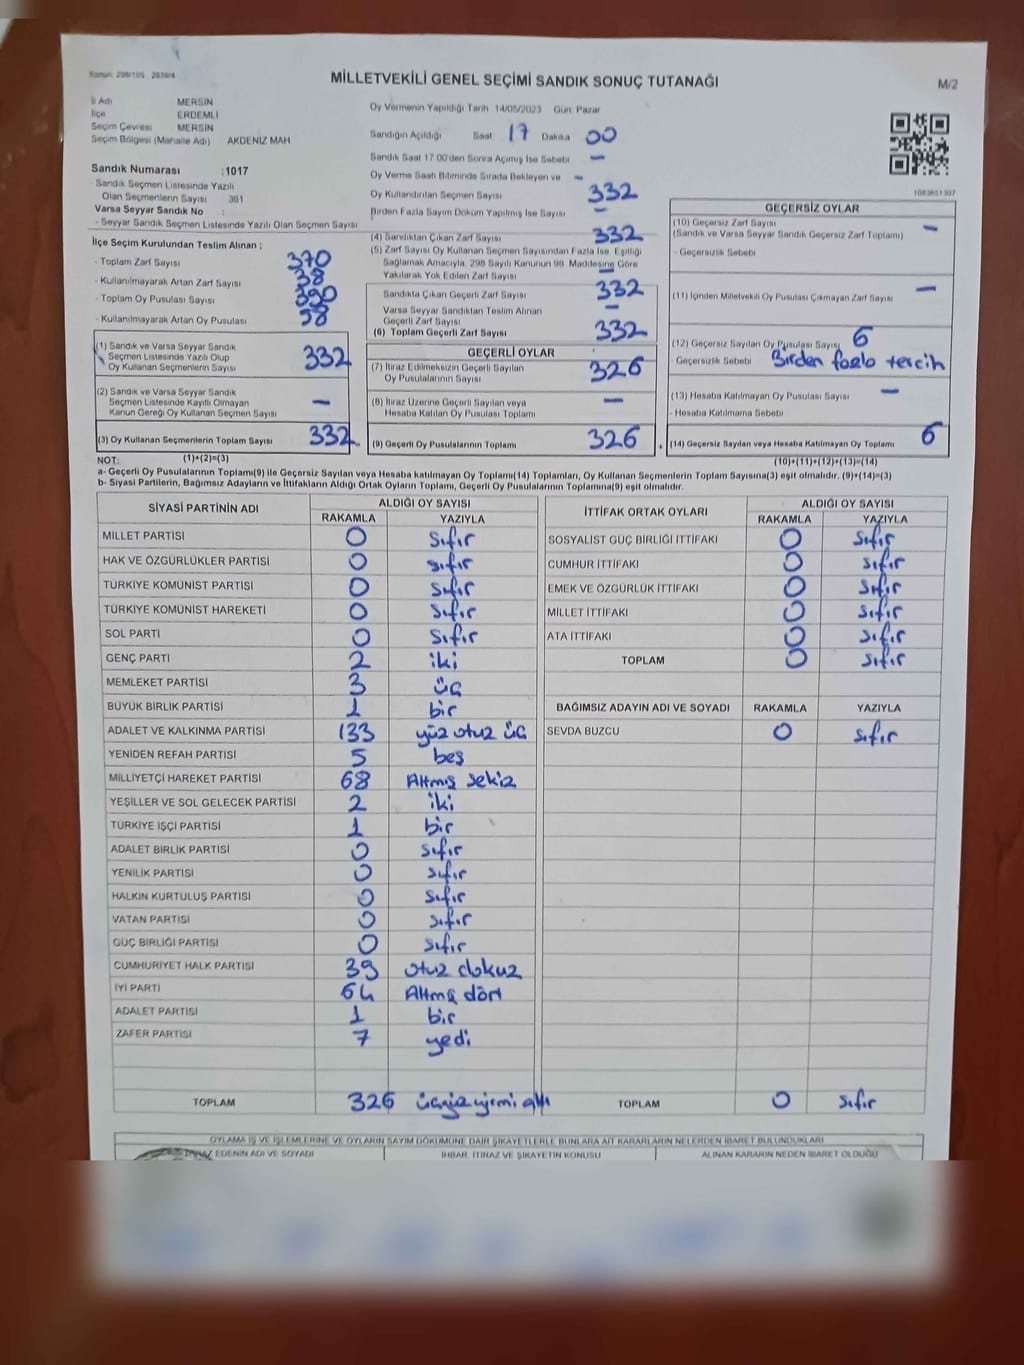 Kanun: 298/105 - 2839/4
MİLLETVEKİLİ GENEL SEÇİMİ SANDIK SONUÇ TUTANAĞI
M/2
İl Adı MERSİN
İlçe ERDEMLİ
Seçim Çevresi MERSİN
Seçim Bölgesi (Mahalle Adı) AKDENİZ MAH
Sandık Numarası :1017
- Sandık Seçmen Listesinde Yazılı
Olan Seçmenlerin Sayısı 361
Varsa Seyyar Sandık No :
- Seyyar Sandık Seçmen Listesinde Yazılı Olan Seçmen Sayısı
İlçe Seçim Kurulundan Teslim Alınan ;
- Toplam Zarf Sayısı 370
- Kullanılmayarak Artan Zarf Sayısı 38
- Toplam Oy Pusulası Sayısı 390
- Kullanılmayarak Artan Oy Pusulası 58
(1) Sandık ve Varsa Seyyar Sandık
Seçmen Listesinde Yazılı Olup
Oy Kullanan Seçmenlerin Sayısı 332
(2) Sandık ve Varsa Seyyar Sandık
Seçmen Listesinde Kayıtlı Olmayan
Kanun Gereği Oy Kullanan Seçmen Sayısı –
(3) Oy Kullanan Seçmenlerin Toplam Sayısı 332
Oy Vermenin Yapıldığı Tarih 14/05/2023 Gün: Pazar
Sandığın Açıldığı Saat 17 Dakika 00
Sandık Saat 17 00'den Sonra Açılmış İse Sebebi –
Oy Verme Saati Bitiminde Sırada Bekleyen ve –
Oy Kullandırılan Seçmen Sayısı 332
Birden Fazla Sayım Döküm Yapılmış İse Sayısı –
(4) Sandıktan Çıkan Zarf Sayısı 332
(5) Zarf Sayısı Oy Kullanan Seçmen Sayısından Fazla İse, Eşitliği
Sağlamak Amacıyla, 298 Sayılı Kanunun 98. Maddesine Göre
Yakılarak Yok Edilen Zarf Sayısı –
Sandıkta Çıkan Geçerli Zarf Sayısı 332
Varsa Seyyar Sandıktan Teslim Alınan
Geçerli Zarf Sayısı –
(6) Toplam Geçerli Zarf Sayısı 332
GEÇERLİ OYLAR
(7) İtiraz Edilmeksizin Geçerli Sayılan
Oy Pusulalarının Sayısı 326
(8) İtiraz Üzerine Geçerli Sayılan veya
Hesaba Katılan Oy Pusulası Toplamı –
(9) Geçerli Oy Pusulalarının Toplamı 326
1083651307
GEÇERSİZ OYLAR
(10) Geçersiz Zarf Sayısı
(Sandık ve Varsa Seyyar Sandık Geçersiz Zarf Toplamı) –
- Geçersizlik Sebebi
(11) İçinden Milletvekili Oy Pusulası Çıkmayan Zarf Sayısı –
(12) Geçersiz Sayılan Oy Pusulası Sayısı 6
- Geçersizlik Sebebi Birden fazla tercih
(13) Hesaba Katılmayan Oy Pusulası Sayısı –
- Hesaba Katılmama Sebebi
(14) Geçersiz Sayılan veya Hesaba Katılmayan Oy Toplamı 6
NOT: (1)+(2)=(3) (10)+(11)+(12)+(13)=(14)
a- Geçerli Oy Pusulalarının Toplamı(9) ile Geçersiz Sayılan veya Hesaba katılmayan Oy Toplamı(14) Toplamları, Oy Kullanan Seçmenlerin Toplam Sayısına(3) eşit olmalıdır. (9)+(14)=(3)
b- Siyasi Partilerin, Bağımsız Adayların ve İttifakların Aldığı Ortak Oyların Toplamı, Geçerli Oy Pusulalarının Toplamına(9) eşit olmalıdır.
SİYASİ PARTİNİN ADI ALDIĞI OY SAYISI
RAKAMLA YAZIYLA
MİLLET PARTİSİ 0 sıfır
HAK VE ÖZGÜRLÜKLER PARTİSİ 0 sıfır
TÜRKİYE KOMÜNİST PARTİSİ 0 sıfır
TÜRKİYE KOMÜNİST HAREKETİ 0 sıfır
SOL PARTİ 0 sıfır
GENÇ PARTİ 2 iki
MEMLEKET PARTİSİ 3 üç
BÜYÜK BİRLİK PARTİSİ 1 bir
ADALET VE KALKINMA PARTİSİ 133 yüz otuz üç
YENİDEN REFAH PARTİSİ 5 beş
MİLLİYETÇİ HAREKET PARTİSİ 68 Altmış sekiz
YEŞİLLER VE SOL GELECEK PARTİSİ 2 iki
TÜRKİYE İŞÇİ PARTİSİ 1 bir
ADALET BİRLİK PARTİSİ 0 sıfır
YENİLİK PARTİSİ 0 sıfır
HALKIN KURTULUŞ PARTİSİ 0 sıfır
VATAN PARTİSİ 0 sıfır
GÜÇ BİRLİĞİ PARTİSİ 0 sıfır
CUMHURİYET HALK PARTİSİ 39 otuz dokuz
İYİ PARTİ 64 Altmış dört
ADALET PARTİSİ 1 bir
ZAFER PARTİSİ 7 yedi
TOPLAM 326 üçyüzyirmi altı
İTTİFAK ORTAK OYLARI ALDIĞI OY SAYISI
RAKAMLA YAZIYLA
SOSYALİST GÜÇ BİRLİĞİ İTTİFAKI 0 sıfır
CUMHUR İTTİFAKI 0 sıfır
EMEK VE ÖZGÜRLÜK İTTİFAKI 0 sıfır
MİLLET İTTİFAKI 0 sıfır
ATA İTTİFAKI 0 sıfır
TOPLAM 0 sıfır
BAĞIMSIZ ADAYIN ADI VE SOYADI RAKAMLA YAZIYLA
SEVDA BUZCU 0 sıfır
TOPLAM 0 sıfır
OYLAMA İŞ VE İŞLEMLERİNE VE OYLARIN SAYIM DÖKÜMÜNE DAİR ŞİKAYETLERLE BUNLARA AİT KARARLARIN NELERDEN İBARET BULUNDUKLARI
EDENİN ADI VE SOYADI İHBAR, İTİRAZ VE ŞİKAYETİN KONUSU ALINAN KARARIN NEDEN İBARET OLDUĞU